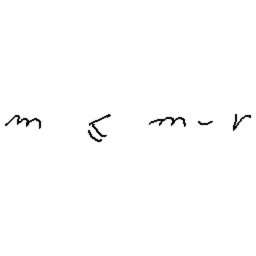 m ⩽ m - r